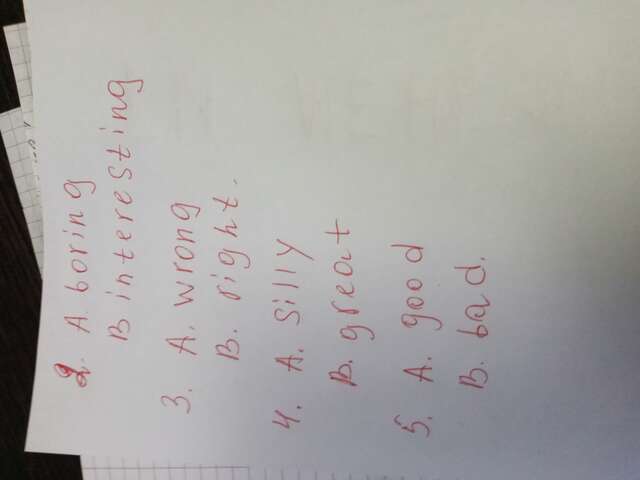 2. A boring
B interesting
3. A. wrong
B. right.
4. A. silly
B. great
5. A. good
B. bad.